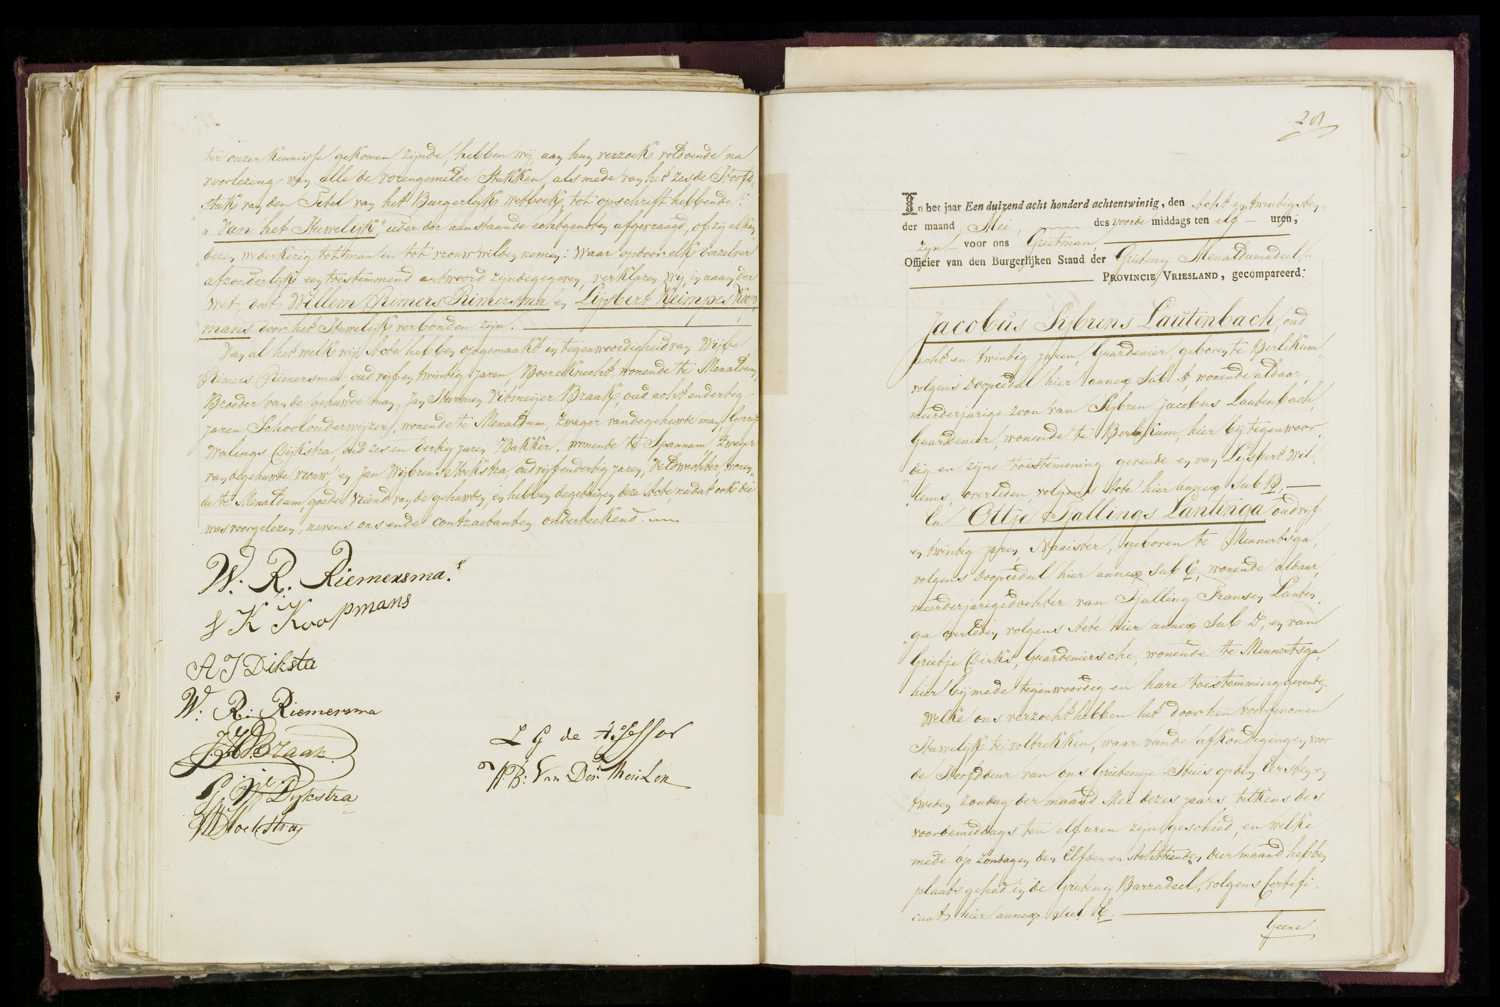 ter onzer kennisse gekomen zijnde, hebben wij, aan hun verzoek voldoende na
voorlezing van alle de vorengemelde Stukken, alsmede van het zesde Hoofd-
stuk van den Titel van het Burgerlijk wetboek, tot opschrift hebbende:
"Van het Huwelijk", ieder der aanstaande echtgenooten afgevraagd, of zij elkan-
deren wederkerig tot man en tot vrouw willen nemen: Waar op door elk derzelver
afzonderlijk een toestemmend antwoord zijnde gegeven, verklaren wij, in naam der
Wet, dat Willem Riemers Riemersma en Lijsbert Keimpes Koop-
mans door het Huwelijk verbonden zijn.
Van al het welk wij Acte hebben opgemaakt in tegenwoordigheid van Wijbe
Riemers Riemersma, oud vijf en twintig Jaren, Boereknecht, wonende te Menaldum,
Broeder van de gehuwde man, Jan Harmens Braak, oud acht en dertig
jaren Schoolonderwijzer, wonende te Menaldum, Zwager van de gehuwde man,
Dijkstra, oud zes en dertig jaren, Bakker, wonende te Spannum Zwager
van de gehuwde vrouw, en Jan Wijbrens Hoekstra, oud vijf en dertig jaren, Veldwachter, wonen-
de te Menaldum, goede vriend van de gehuwden, en hebben degenigen deze Acte nadat ook die
was voorgelezen, nevens ons en de contractanten onderteekend.
W. R. Riemersma.
L K Koopmans
A J Diksta
W: R: Riemersma
J. H. Braak.
Dijkstra
J W Hoekstra
L G de
W B: Van Der Meulen
29
In het jaar Een duizend acht honderd achtentwintig, den acht en twintigsten
der maand Mei, des voorde middags ten elf uren,
zijn voor ons Grietman
Officier van den Burgerlijken Staud der Grietenij Menaldumadeel
PROVINCIE VRIESLAND, gecompareerd:
Jacobus Sybrens Lautenbach, oud
acht en twintig jaren, Gardenier, geboren te Berlikum,
volgens Doopcedul hier annex Sub A wonende aldaar,
meerderjarige zoon van Sybren Jacobus Lautenbach,
Gardenier, wonende te Berlikum, hier bij tegenwoor-
dig en zijne toestemming gevende en van Lijsbert Wil-
lems, overleden, volgens Acte hier annex Sub B,
En Ottje Tjallings Lantinga oud vijf
en twintig jaren, Naaister, geboren te Minnertsga,
volgens Doopcedul hier annex Sub C, wonende aldaar,
meerderjarige dochter van Tjalling Fransen Lantin-
ga overleden, volgens Acte hier annex Sub D, en van
Grietje Dirks, Gardeniersche, wonende te Minnertsga,
hier bij mede tegenwoordig en hare toestemming gevende,
Welke ons verzocht hebben het door hen voorgenomen
Huwelijk te voltrekken, waar van de afkondigingen voor
de Hoofddeur van ons Grietenije Huis op den eersten en
tweden zondag der maand Mei dezes jaars telkens des
voordemiddags ten elf uren zijn geschied, en welke
mede op Zondagen den Elfden en Achttienden dier maand hebben
plaats gehad in de Grietenij Barradeel, volgens Certifi-
caat, hier annex sub E.
Geene